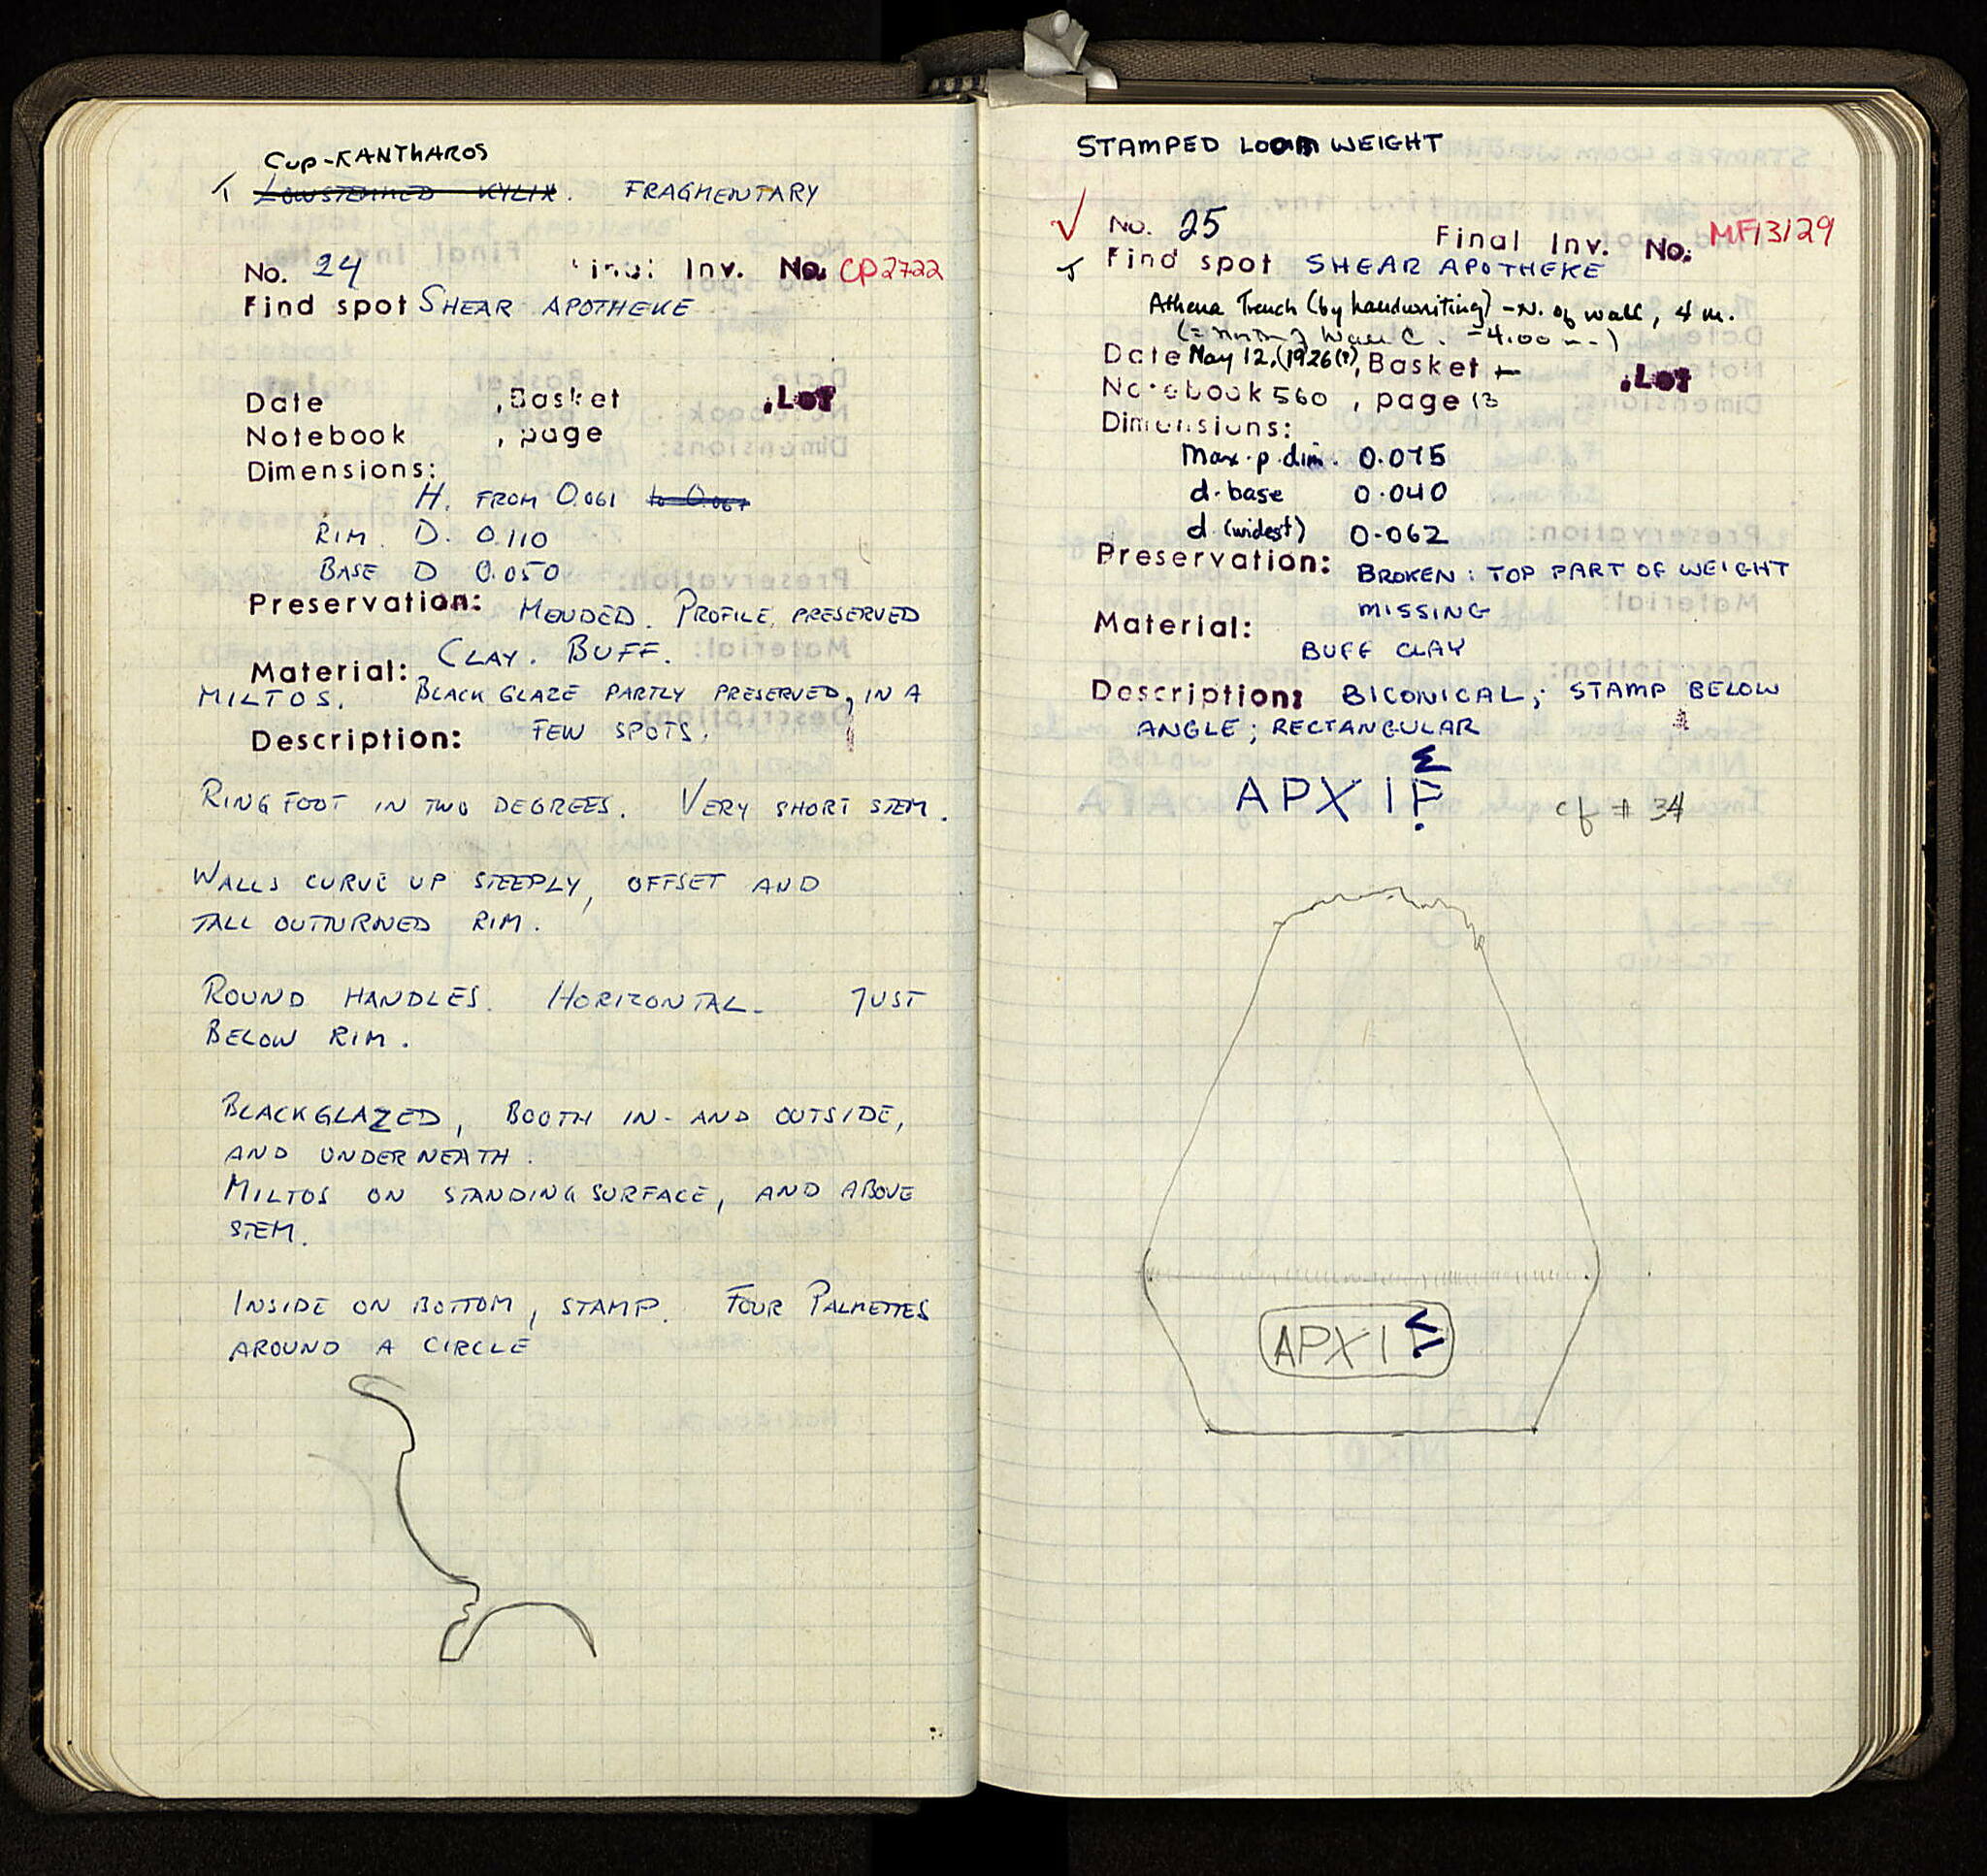 Cup-KANTHAROS
T LOWSTEMMED KYLIX. FRAGMENTARY
No. 24 Final Inv. No. CP2722
Find spot SHEAR APOTHEKE
Date , Basket , Lot
Notebook , page
Dimensions:
H. FROM 0.061 to 0.067
RIM. D. 0.110
BASE D 0.050
Preservation: MENDED. PROFILE PRESERVED
Material: CLAY. BUFF.
MILTOS. BLACK GLAZE PARTLY PRESERVED, IN A
FEW SPOTS.
Description:
RING FOOT IN TWO DEGREES. VERY SHORT STEM.
WALLS CURVE UP STEEPLY, OFFSET AND
TALL OUTTURNED RIM.
ROUND HANDLES. HORIZONTAL. JUST
BELOW RIM.
BLACKGLAZED, BOOTH IN- AND OUTSIDE,
AND UNDERNEATH.
MILTOS ON STANDING SURFACE, AND ABOVE
STEM.
INSIDE ON BOTTOM, STAMP. FOUR PALMETTES
AROUND A CIRCLE
STAMPED LOOM WEIGHT
√ No. 25 Final Inv. No. MF13129
T Find spot SHEAR APOTHEKE
Athena Trench (by handwriting) - N. of wall, 4 m.
Wall C. -4.00
Date May 12, (1926(?), Basket — , Lot
Notebook 560 , page 13
Dimensions:
Max. p. dim. 0.075
d. base 0.040
d. (widest) 0.062
Preservation: BROKEN: TOP PART OF WEIGHT
MISSING
Material:
BUFF CLAY
Description: BICONICAL; STAMP BELOW
ANGLE; RECTANGULAR
Σ
ΑΡΧΙF
cf # 34
ΑΡΧΙΣ